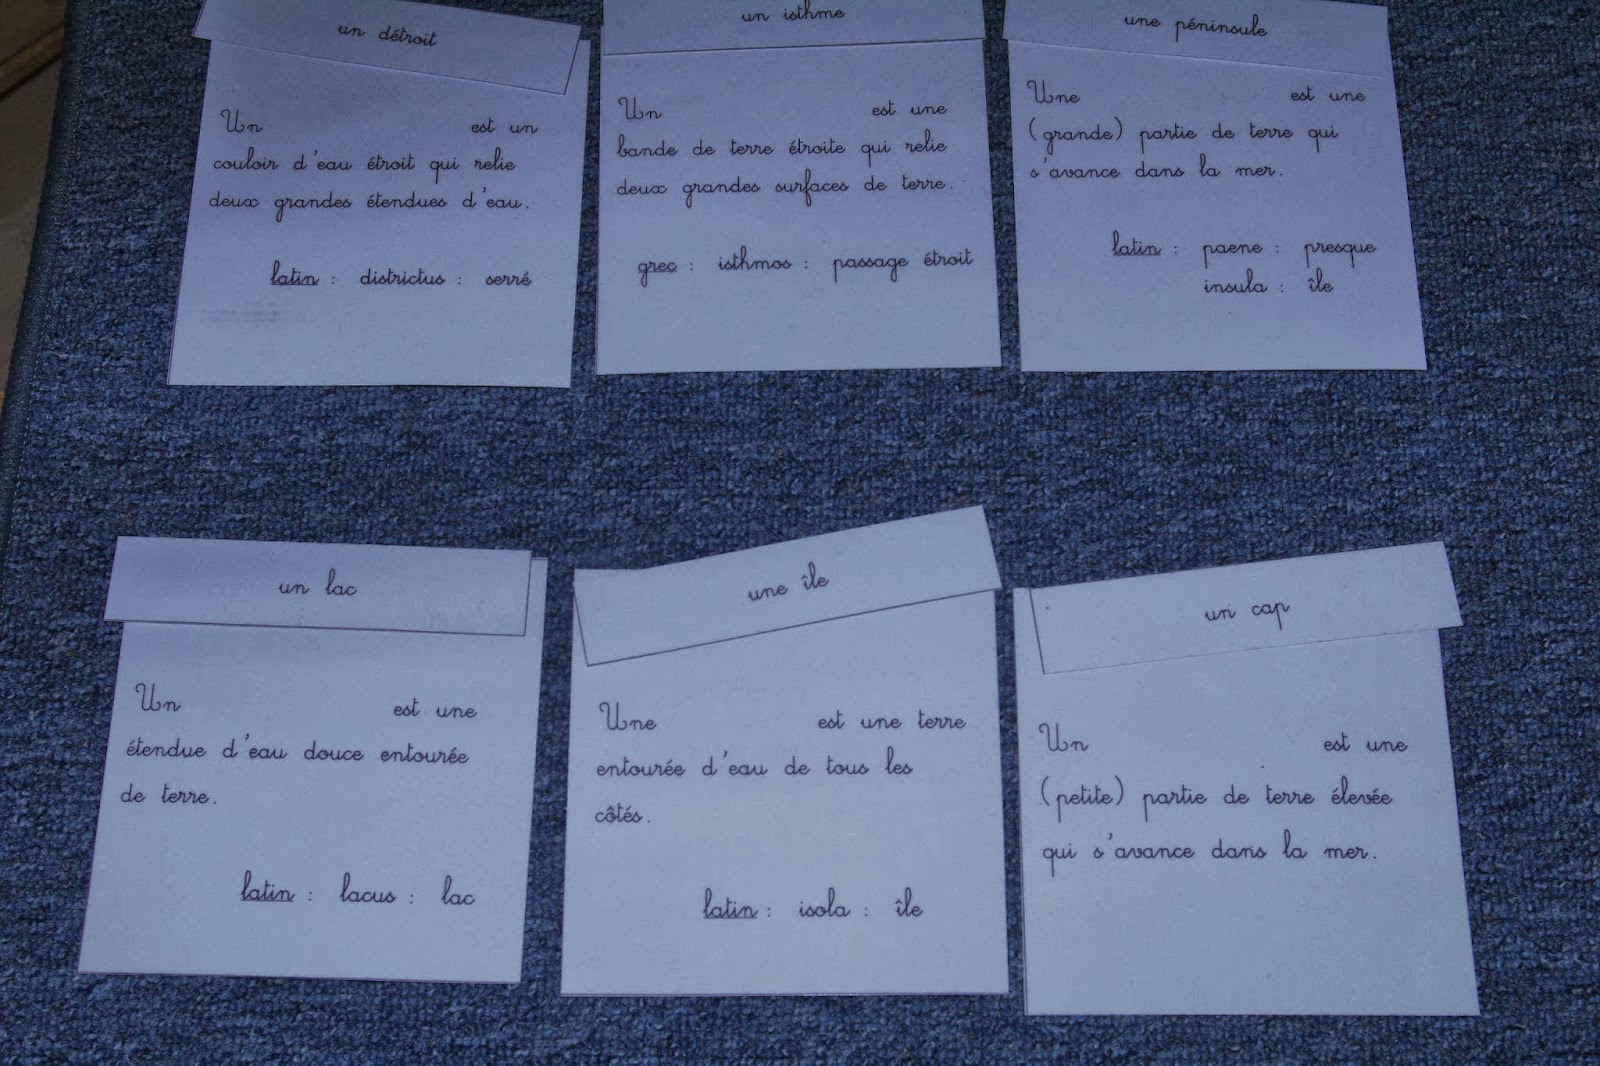 un détroit
Un est un
couloir d'eau étroit qui relie
deux grandes étendues d'eau.
latin : districtus : serré
un isthme
Un est une
bande de terre étroite qui relie
deux grandes surfaces de terre.
grec : isthmos : passage étroit
une péninsule
Une est une
(grande) partie de terre qui
s'avance dans la mer.
latin : paene : presque
insula : île
un lac
Un est une
étendue d'eau douce entourée
de terre.
latin : lacus : lac
une île
Une est une terre
entourée d'eau de tous les
côtés.
latin : isola : île
un cap
Un est une
(petite) partie de terre élevée
qui s'avance dans la mer.